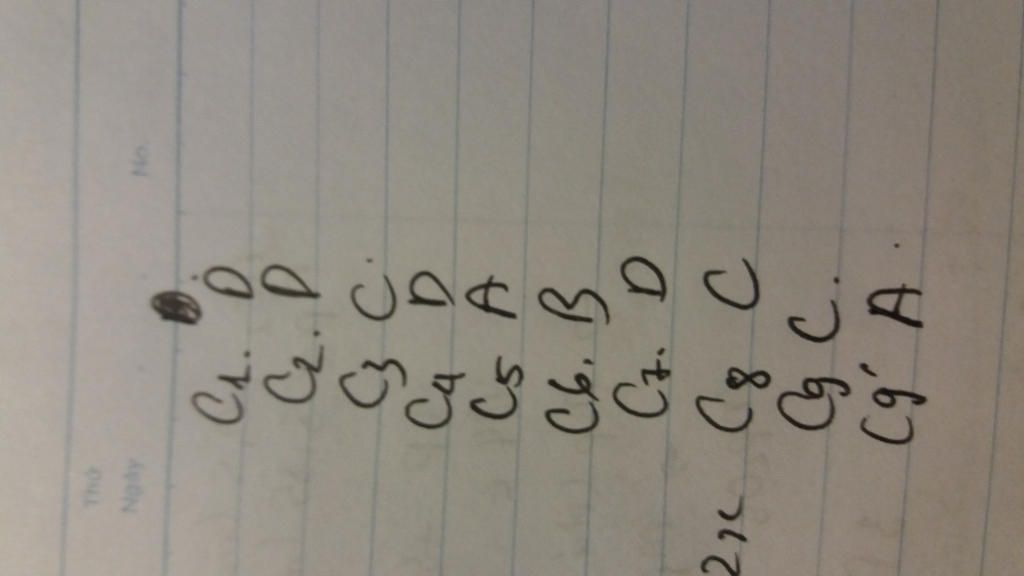 Thứ
Ngày
No.
C1. D
C2. D
C3 C.
C4 D
C5 A
C6. B
C7. D
C8 C
C9 C.
C9' A.